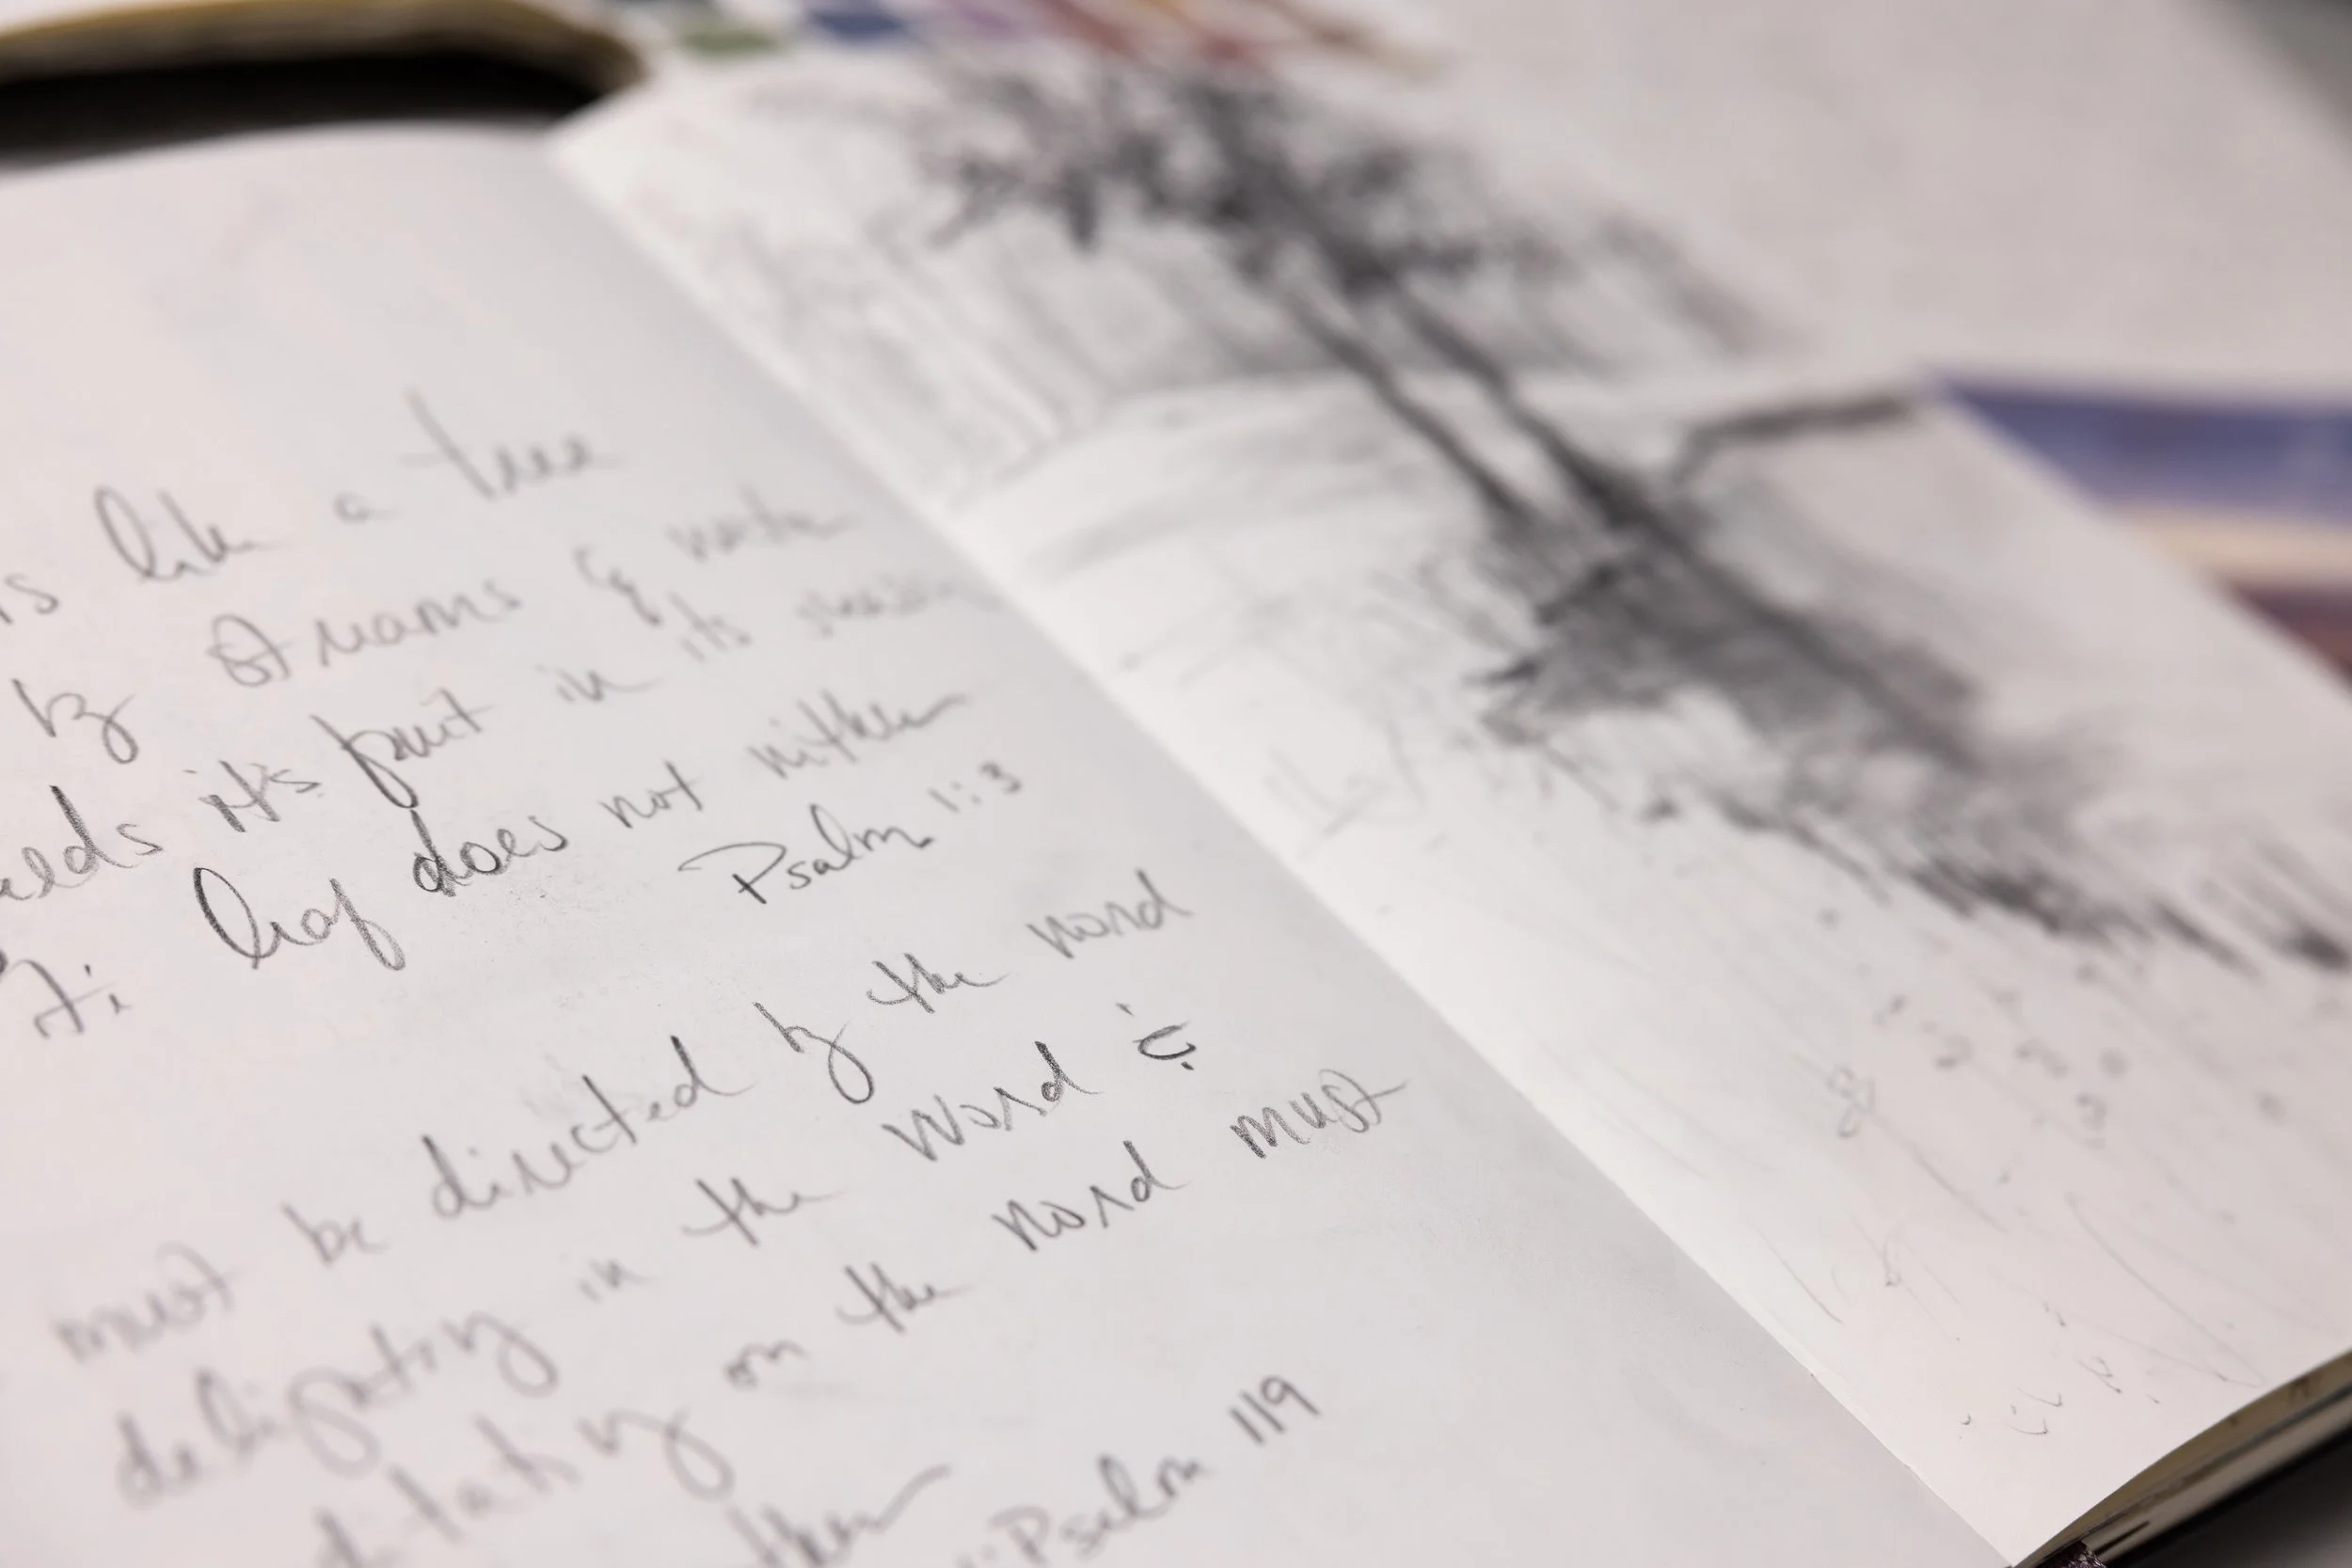 is like a tree
by streams of water
its fruit in its season
leaf does not wither
Psalm 1:3
must be directed by the word
delighting in the word &
on the word must
Psalm 119